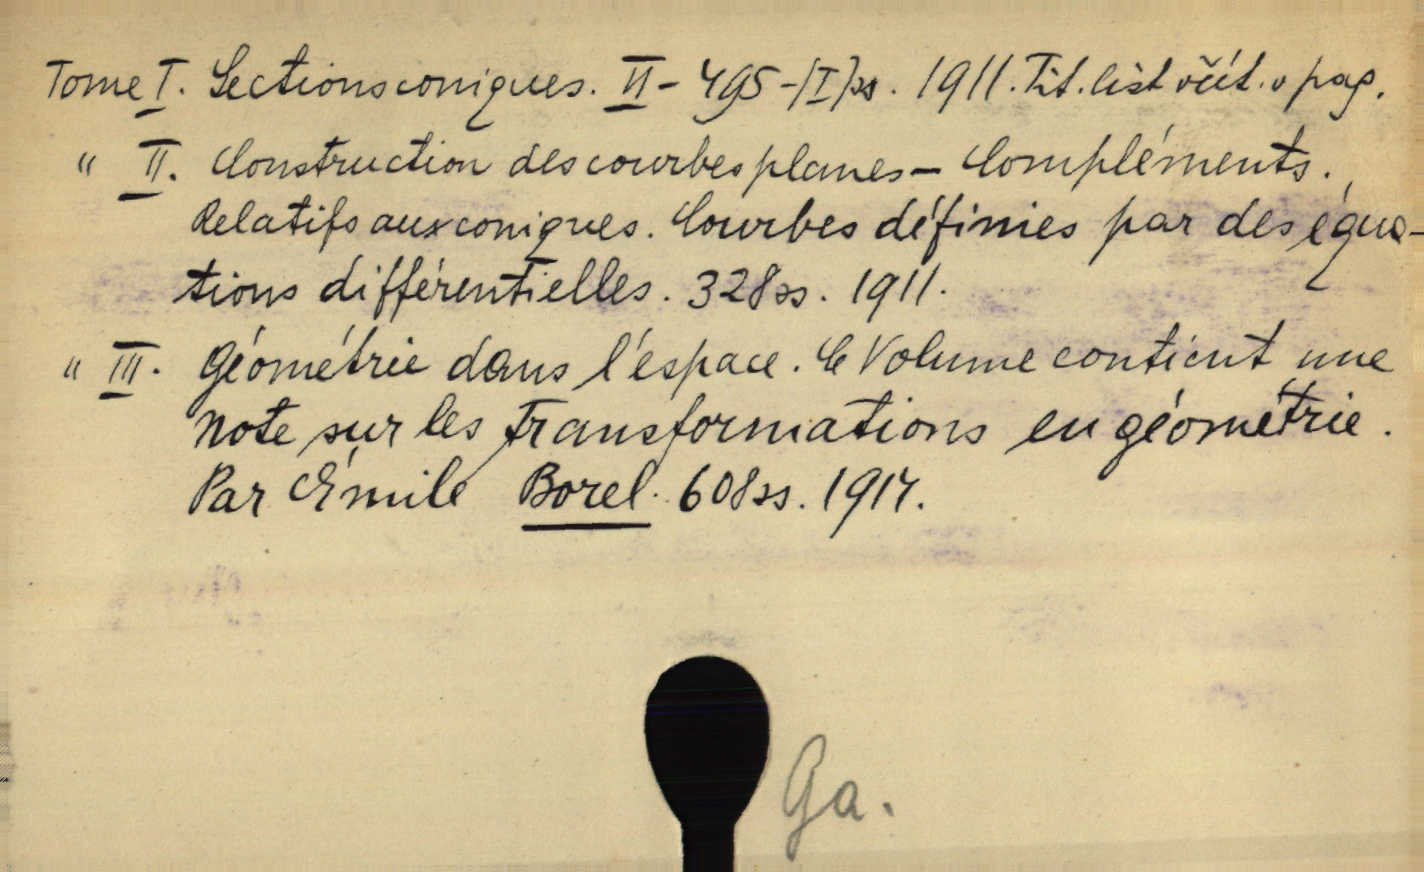 Tome I. Sections coniques. VI - 495 - [I] ss. 1911. Tit. list včít. v pag.
" II. Construction des courbes planes - Compléments.
Relatifs aux coniques. Courbes définies par des équa-
tions différentielles. 328 ss. 1911.
" III. Géométrie dans l'espace. Ce Volume contient une
note sur les Transformations en géométrie.
Par Émile Borel. 608 ss. 1914.
Ga.